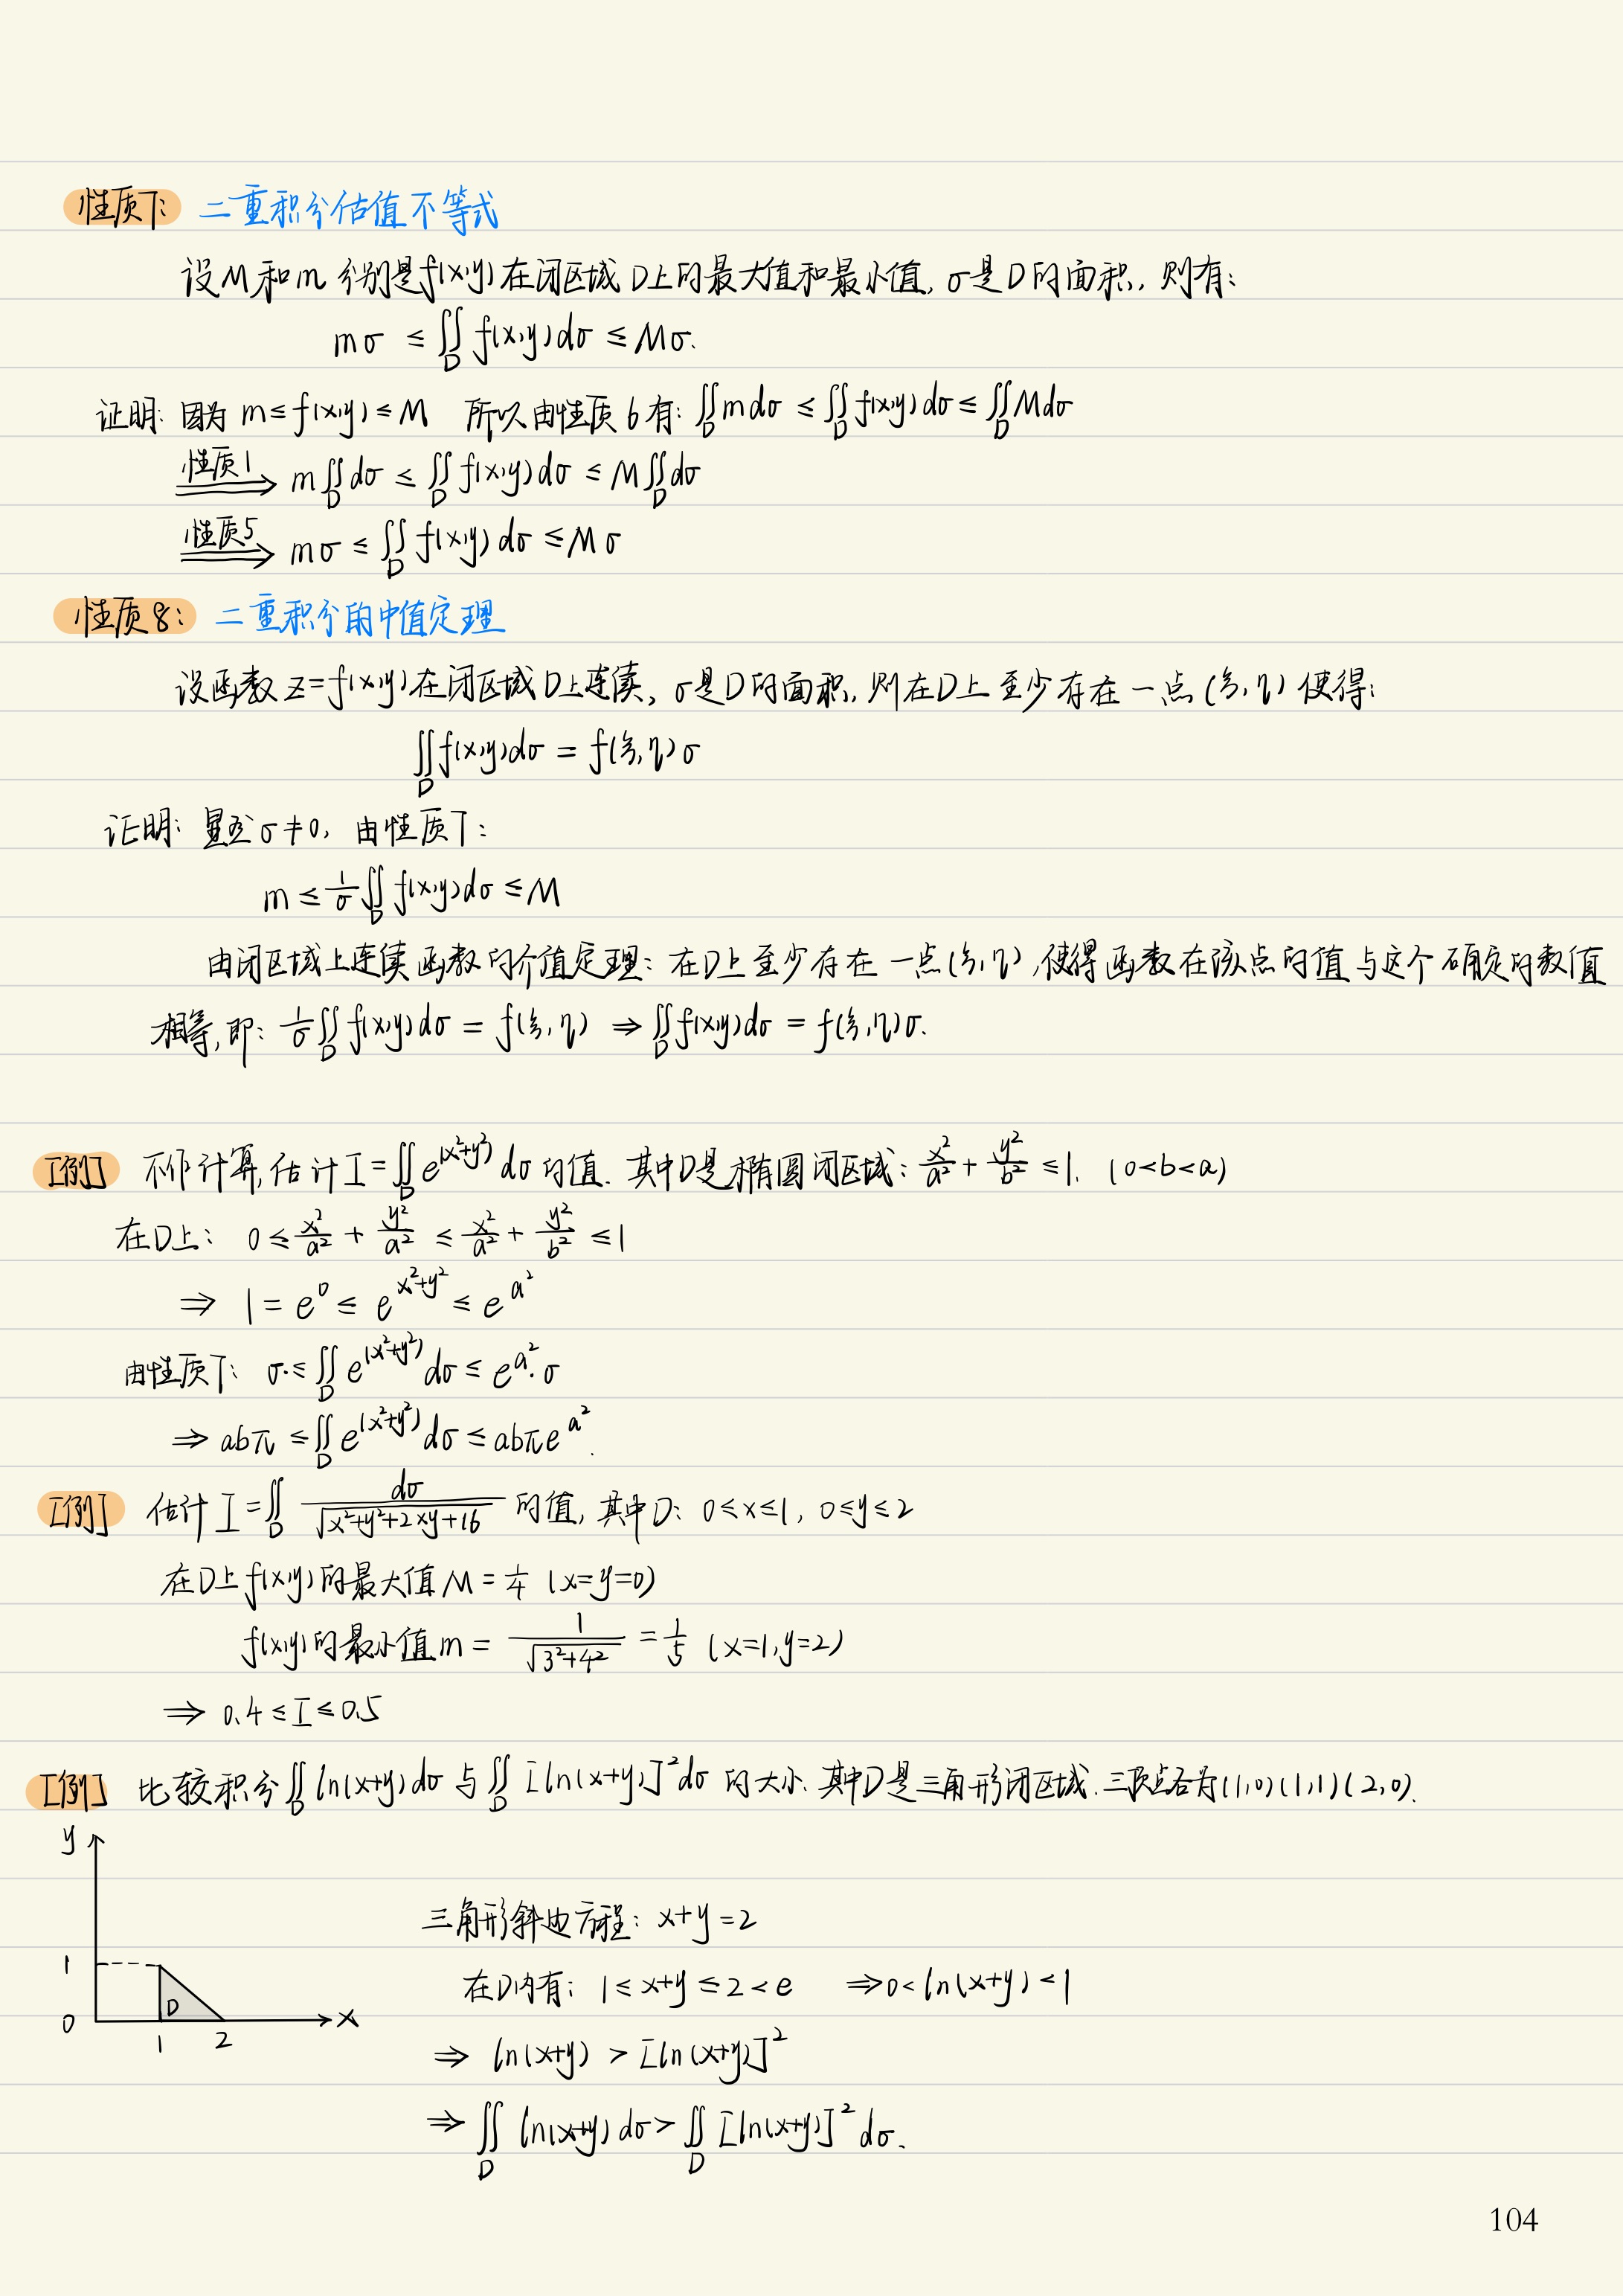 性质7: 二重积分估值不等式
设M和m分别是f(x,y)在闭区域D上的最大值和最小值, σ是D的面积, 则有:
mσ ≤ ∬_D f(x,y)dσ ≤ Mσ.
证明: 因为 m ≤ f(x,y) ≤ M 所以由性质6有: ∬_D mdσ ≤ ∬_D f(x,y)dσ ≤ ∬_D Mdσ
性质1 ⟹ m∬_D dσ ≤ ∬_D f(x,y)dσ ≤ M∬_D dσ
性质5 ⟹ mσ ≤ ∬_D f(x,y)dσ ≤ Mσ
性质8: 二重积分的中值定理
设函数 z=f(x,y)在闭区域D上连续, σ是D的面积, 则在D上至少存在一点(ξ,η)使得:
∬_D f(x,y)dσ = f(ξ,η)σ
证明: 显然σ≠0, 由性质7:
m ≤ 1/σ ∬_D f(x,y)dσ ≤ M
由闭区域上连续函数的介值定理: 在D上至少存在一点(ξ,η), 使得函数在该点的值与这个确定的数值
相等, 即: 1/σ ∬_D f(x,y)dσ = f(ξ,η) ⇒ ∬_D f(x,y)dσ = f(ξ,η)σ.
[例] 不作计算, 估计 I=∬_D e^(x²+y²) dσ 的值. 其中D是椭圆闭区域: x²/a² + y²/b² ≤ 1. (0<b<a)
在D上: 0 ≤ x²/a² + y²/a² ≤ x²/a² + y²/b² ≤ 1
⇒ 1 = e⁰ ≤ e^x²+y² ≤ e^a²
由性质7: σ· ≤ ∬_D e^(x²+y²) dσ ≤ e^a²·σ
⇒ abπ ≤ ∬_D e^(x²+y²) dσ ≤ abπe^a².
[例] 估计 I=∬_D dσ/√(x²+y²+2xy+16) 的值, 其中D: 0≤x≤1, 0≤y≤2
在D上f(x,y)的最大值M = 1/4 (x=y=0)
f(x,y)的最小值m = 1/√(3²+4²) = 1/5 (x=1,y=2)
⇒ 0.4 ≤ I ≤ 0.5
[例] 比较积分∬_D ln(x+y)dσ 与 ∬_D [ln(x+y)]²dσ 的大小. 其中D是三角形闭区域. 三顶点各为(1,0)(1,1)(2,0).
y
三角形斜边方程: x+y=2
1
在D内有: 1≤x+y≤2<e ⇒ 0<ln(x+y)<1
D
0
x
1 2
⇒ ln(x+y) > [ln(x+y)]²
⇒ ∬_D ln(x+y)dσ > ∬_D [ln(x+y)]²dσ.
104